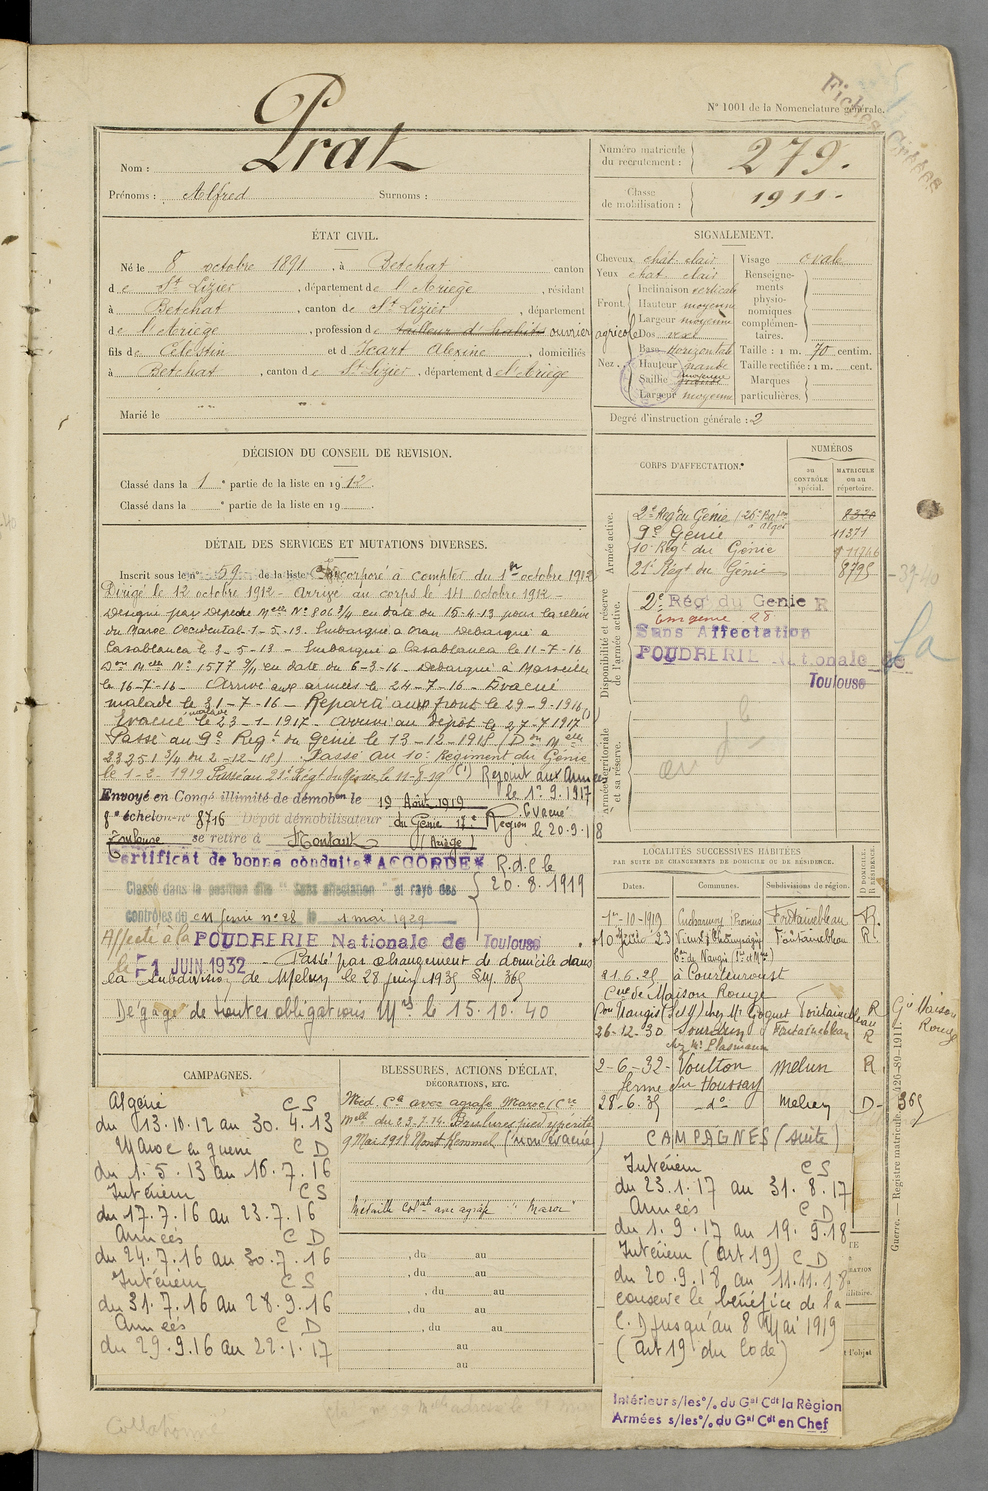 N° 1001 de la Nomenclature générale.
Nom : Prat
Prénoms : Alfred Surnoms :
Numéro matricule du recrutement : 279.
Classe de mobilisation : 1911.
ÉTAT CIVIL.
Né le 8 octobre 1891, à Betchat canton
de St Lizier, département de l'Ariège, résidant
à Betchat, canton de St Lizier, département
de l'Ariège, profession de tailleur d'habits ouvrier agricole
fils de Célestin et d Icart Alexine, domiciliés
à Betchat, canton de St Lizier, département de l'Ariège
Marié le
SIGNALEMENT.
Cheveux chât clair Visage ovale
Yeux chat clair Renseignements physionomiques complémentaires.
Front. Inclinaison verticale
Hauteur moyenne
Largeur moyenne
Nez. Dos vexe
Base Horizontale Taille : 1 m. 70 centim.
Hauteur grande Taille rectifiée : 1 m. cent.
Saillie moyenne Marques
Largeur moyenne particulières.
Degré d'instruction générale : 2
DÉCISION DU CONSEIL DE REVISION.
Classé dans la 1e partie de la liste en 1912.
Classé dans la e partie de la liste en 19
CORPS D'AFFECTATION.
NUMÉROS
au CONTRÔLE spécial.
MATRICULE ou au répertoire.
Armée active.
2e Régt du Génie (26e Baton à Alger 8320
9e Génie 11371
10e Régt du Génie 11746
21e Régt du Génie 8795
Disponibilité et réserve de l'armée active.
2e Rég du Genie R
Sans Affectation
POUDRERIE Nationale de
Toulouse
Armée territoriale et sa réserve.
DÉTAIL DES SERVICES ET MUTATIONS DIVERSES.
Inscrit sous le n° 59 de la liste Incorporé à compter du 1er octobre 1912
Dirigé le 12 octobre 1912 - Arrivé au corps le 14 octobre 1912 -
Désigné par Dépêche Melle No 806 3/4 en date du 15-4-13 pour la relève
du Maroc Occidental 1-5-13. Embarqué a Oran Debarqué a
Casablanca le 3-5-13 - Embarqué a Casablanca le 11-7-16
Don Melle No 1577 3/4 en date du 6-3-16 - Débarqué à Marseille
le 16-7-16 - Arrivé aux armées le 24-7-16 - Evacué
malade le 31-7-16 - Reparti au front le 29-9-1916
Evacué malade le 23-1-1917 - arrivé au Dépôt le 27-7 1917
Passé au 9e Régt du Génie le 13-12-1918 (Don Melle
23251 3/4 du 2-12-18) Passé au 10e Régiment du Génie
le 1-2-1919 Passé au 21e Régt du Génie le 11-8-19 (1) Rejoint aux Armées
le 1er 9.1917
Evacué
le 20-9-18
Envoyé en Congé illimité de démobon le 19 Août 1919
8e échelon n° 8716 Dépôt démobilisateur du Génie 17e Région
Toulouse se retire à Montaut (Ariège)
Certificat de bonne conduite "ACCORDÉ" R.d.C le
20.8.1919
Classé dans la position dite "Sans affectation" et rayé des
contrôles du CM Génie n° 28 le 1 mai 1929
Affecté à la POUDRERIE Nationale de Toulouse
le 1 JUIN 1932 - Passé par changement de domicile dans
la Subdivision de Melun le 28 juin 1935
Dégagé de toutes obligations Mres le 15.10.40
LOCALITÉS SUCCESSIVES HABITÉES
PAR SUITE DE CHANGEMENTS DE DOMICILE OU DE RÉSIDENCE.
Dates. Communes. Subdivisions de région. D DOMICILE. R RÉSIDENCE.
1er-10-1919 Fontainebleau R.
10 23 Vieux Champagne Fontainebleau R.
Con de Nangis (S. et M.)
21.6.25 à Courtevroust
Cne de Maison Rouge
Con Nangis (S et M) chez Mr Goguet Fontainebleau R
26-12-30 Sourdun Fontainebleau R
2-6-32 Voulton Melun R
ferme du Houssay
28-6-35 do Melun D
Gie Maison Rouge
365
CAMPAGNES.
Algérie C S
du 13.10.12 au 30.4.13
Maroc en guerre C D
du 1.5.13 au 16.7.16
Intérieur C S
du 17.7.16 au 23.7.16
Armées C D
du 24.7.16 au 30.7.16
Intérieur C S
du 31.7.16 au 28.9.16
Armées C D
du 29.9.16 au 22.1.17
BLESSURES, ACTIONS D'ÉCLAT, DÉCORATIONS, ETC.
Med. Cle avec agrafe Maroc (Cre
melle du 23.7.14. Brulures pied ypérité
9 Mai 1918 Mont Kemmel (non évacué)
Médaille Colale avec agrafe "Maroc"
, du au
, du au
, du au
, du au
, du au
au
au
CAMPAGNES (suite)
Intérieur C S
du 23.1.17 au 31.8.17
Armées C D
du 1.9.17 au 19.9.18
Intérieur (art 19) C D
du 20.9.18 au 11.11.18
conserve le bénéfice de la
C.D jusqu'au 8 Mai 1919
(art 19 du Code)
Intérieur s/les % du Gal Cdt la Région
Armées s/les % du Gal Cdt en Chef
Guerre. — Registre matricule.